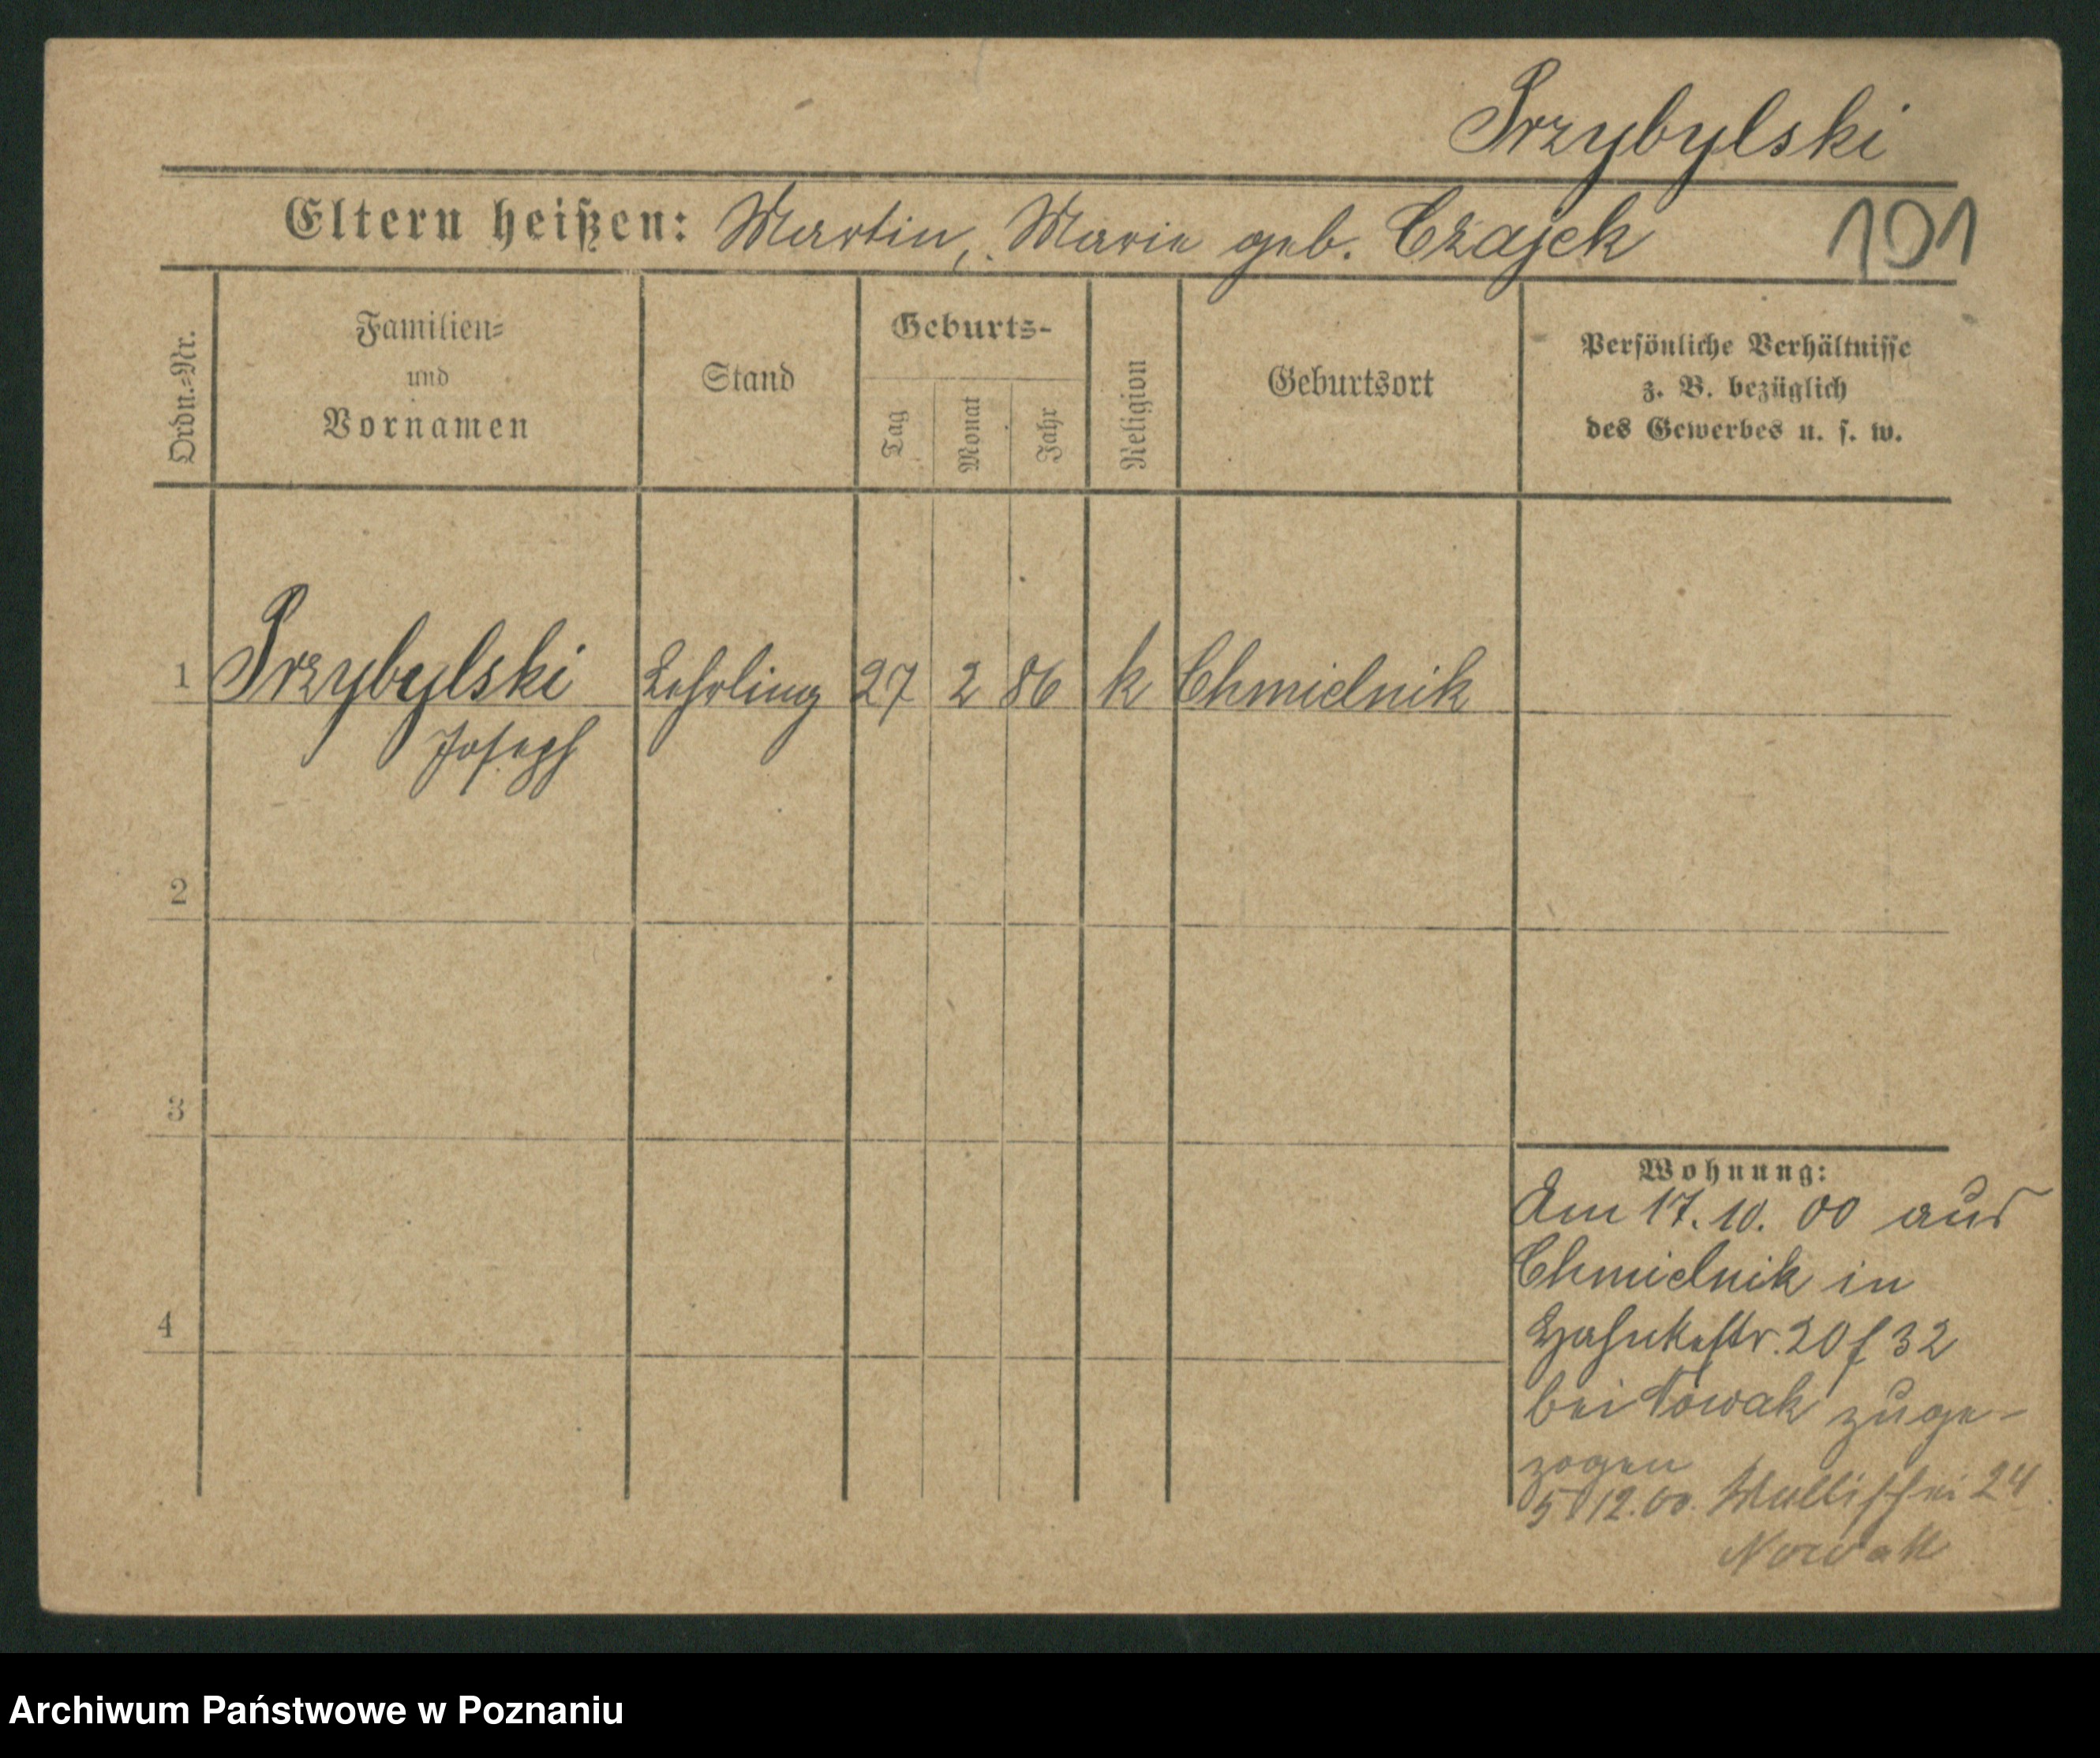 Przybylski
Eltern heißen: Martin, Marie geb. Czajek
101
Ordn.-Nr.
Familien-
und
Vornamen
Stand
Geburts-
Tag
Monat
Jahr
Religion
Geburtsort
Persönliche Verhältnisse
z. B. bezüglich
des Gewerbes u. s. w.
1 Przybylski Lehrling 27 2 86 k Chmielnik
Joseph
2
3
4
Wohnung:
Am 17. 10. 00 aus
Chmielnik in
20 f 32
bei Nowak zuge-
zogen
5 12. 00. Wallischei 24
Nowak
Archiwum Państwowe w Poznaniu